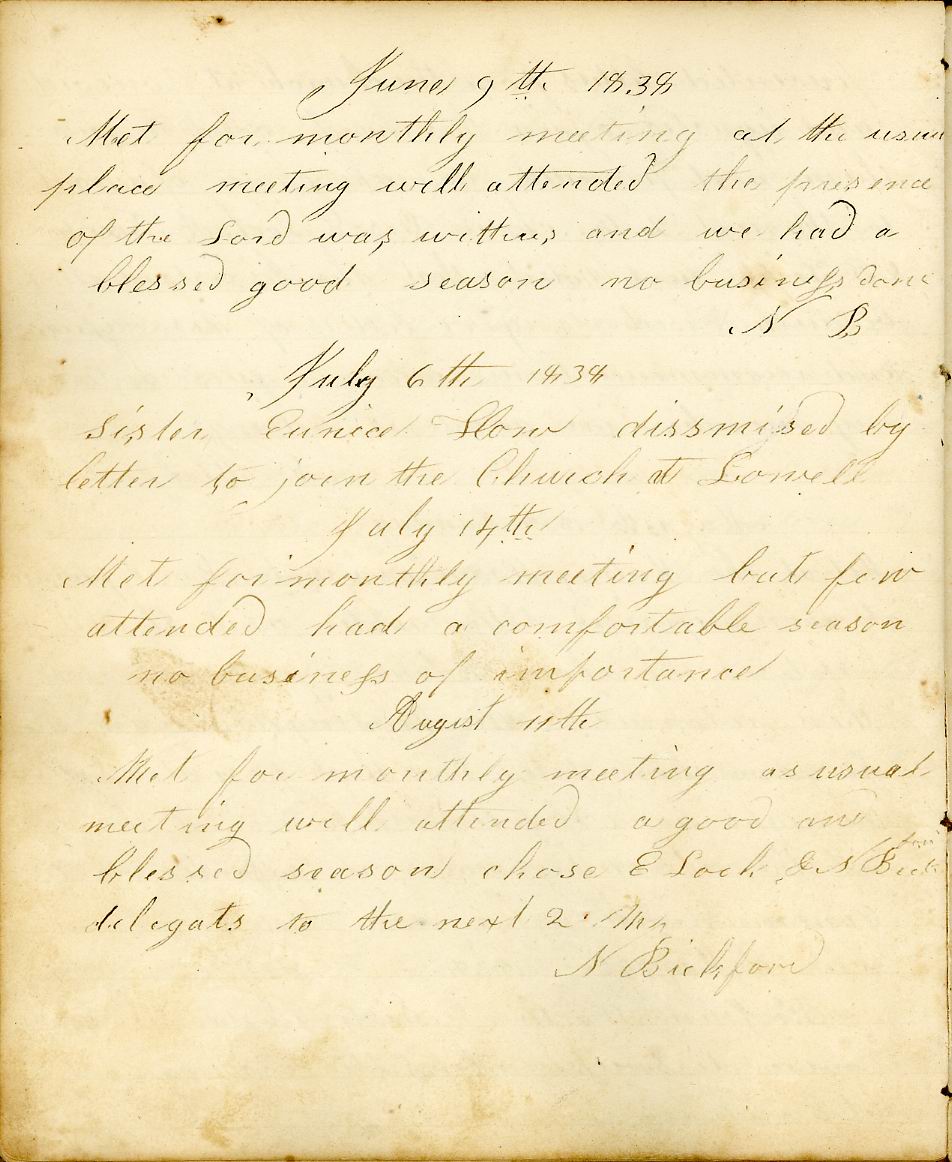 June 9th 1838
Met for monthly meeting at the usual
place meeting well attended the presence
of the Lord was with us and we had a
blessed good season no business done
N B
July 6th 1838
Sister Eunice How dissmised by
letter to join the Church at Lowell
July 14th
Met for monthly meeting but few
attended had a comfortable season
no business of importance
Augist 11th
Met for monthly meeting as usual
meeting well attended a good and
blessed season chose E Lock & N Bickford
delegats to the next 2 Mh
N Bickford